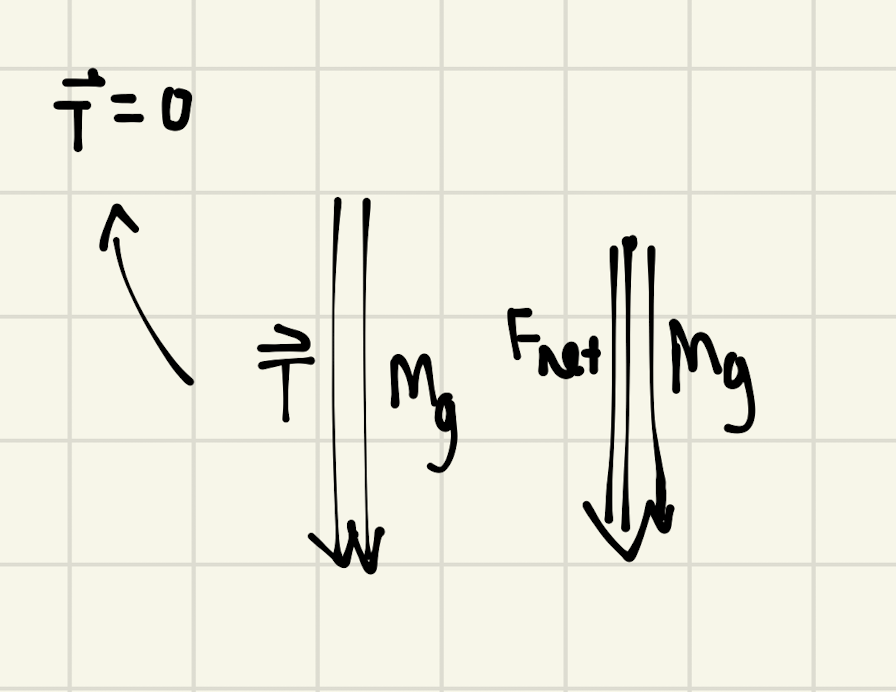 T⃗ = 0
T⃗ Mg
Fnet Mg